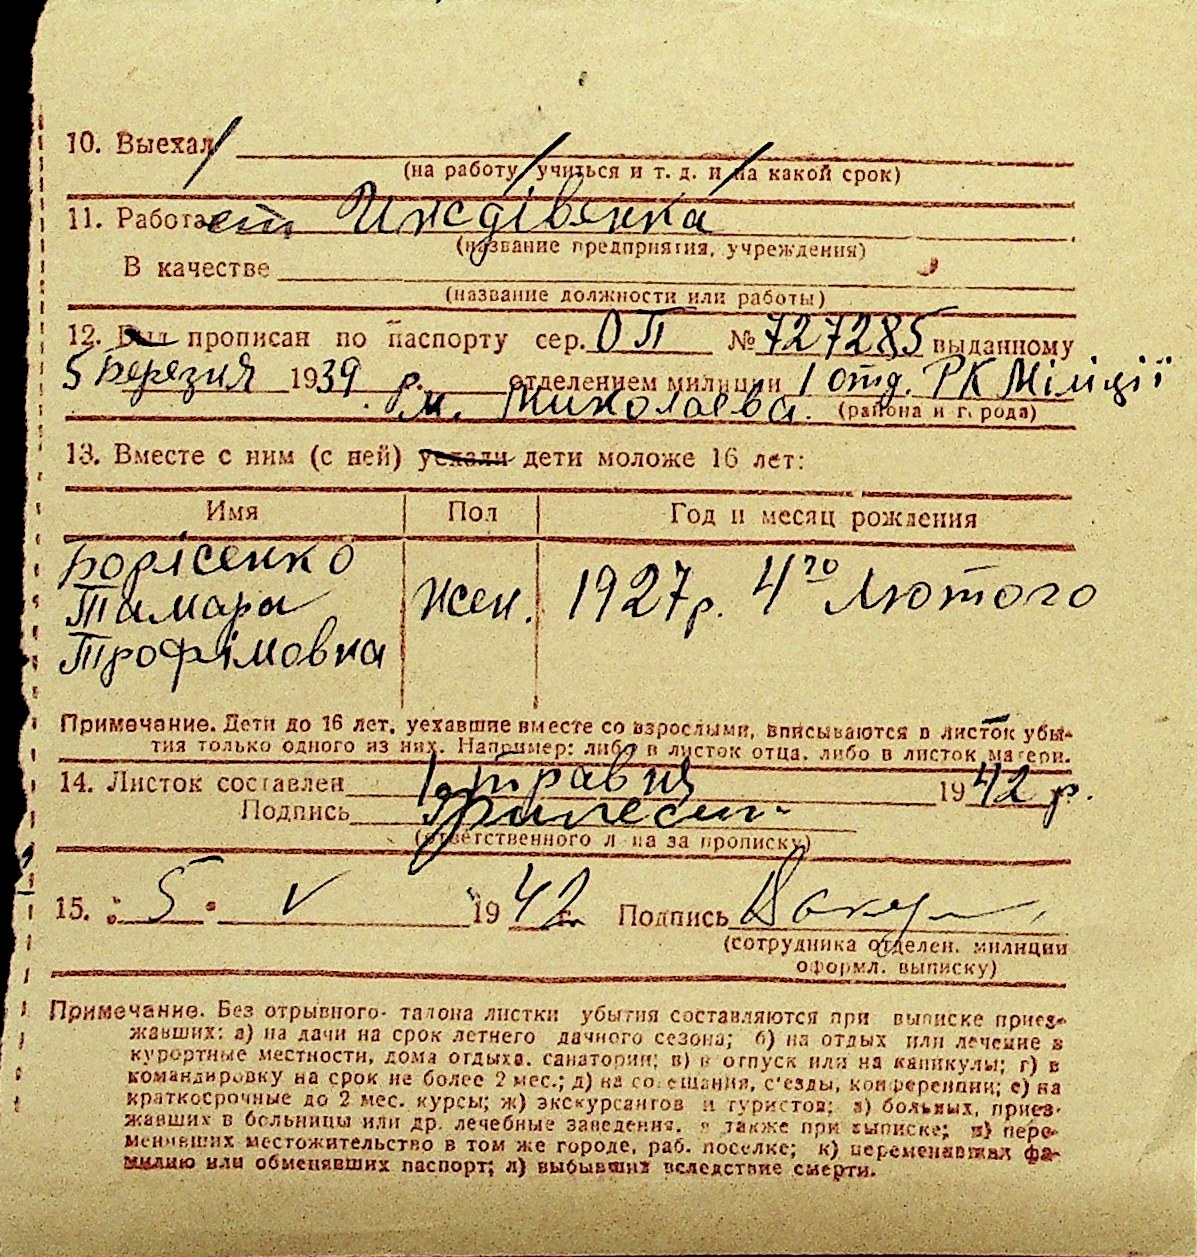 10. Выехал
(на работу, учиться и т. д. и на какой срок)
11. Работает Иждівянка
(название предприятия, учреждения)
В качестве
(название должности или работы)
12. Был прописан по паспорту сер. ОП № 727285 выданному
5 Березня 1939 р. отделением милиции 1 отд. РК Міліції
м. Миколаева. (района и города)
13. Вместе с ним (с ней) уехали дети моложе 16 лет:
Имя Пол Год и месяц рождения
Борісенко
Тамара Жен. 1927 р. 4го Лютого
Трофімовна
Примечание. Дети до 16 лет, уехавшие вместе со взрослыми, вписываются в листок убы-
тия только одного из них. Например: либо в листок отца, либо в листок матери.
14. Листок составлен 1 травня 1942 р.
Подпись
(ответственного л-ца за прописку)
15. 5. V 1942 г. Подпись
(сотрудника отделен. милиции
оформл. выписку)
Примечание. Без отрывного талона листки убытия составляются при выписке приез-
жавших: а) на дачи на срок летнего дачного сезона; б) на отдых или лечение в
курортные местности, дома отдыха, санатории; в) в отпуск или на каникулы; г) в
командировку на срок не более 2 мес.; д) на совещания, с'езды, конференции; е) на
краткосрочные до 2 мес. курсы; ж) экскурсантов и туристов; з) больных, приез-
жавших в больницы или др. лечебные заведения, а также при выписке; и) пере-
менивших местожительство в том же городе, раб. поселке; к) переменивших фа-
милию или обменявших паспорт; л) выбывших вследствие смерти.